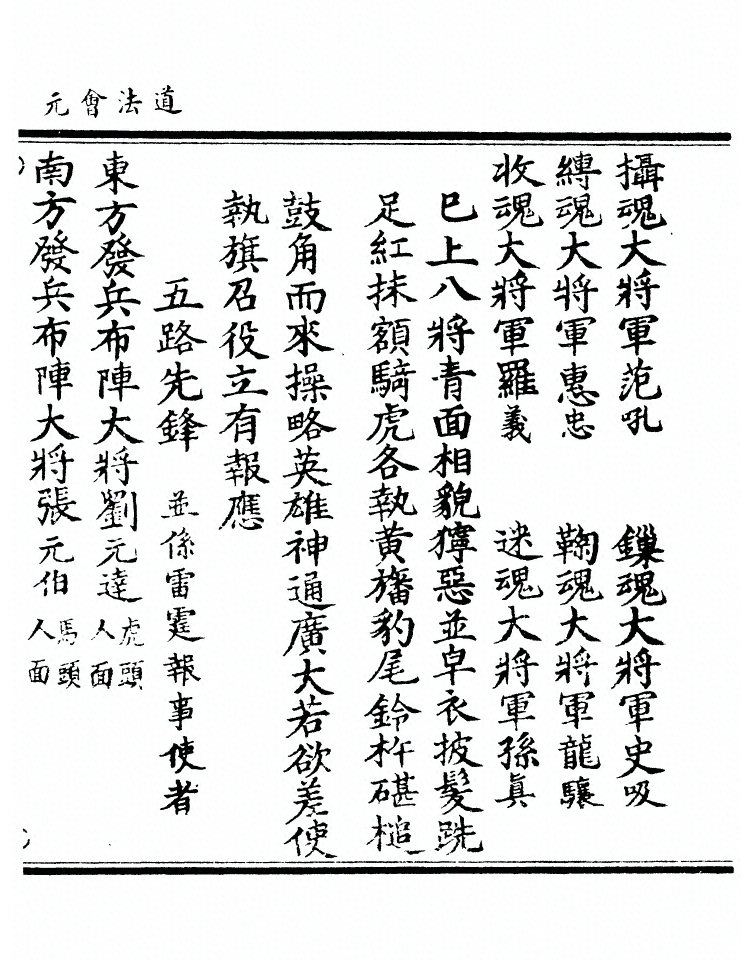 道法會元
攝魂大將軍范吼　鏁魂大將軍史吸
縛魂大將軍惠忠　鞫魂大將軍龍驤
收魂大將軍羅義　迷魂大將軍孫眞
巳上八將青面相貌獰惡並皁衣披髮跣
足紅抹額騎虎各執黃旛豹尾鈴杵碪槌
鼓角而來操略英雄神通廣大若欲差使
執旗召役立有報應
五路先鋒　並係雷霆報事使者
東方發兵布陣大將劉元達虎頭人面
南方發兵布陣大將張元伯馬頭人面